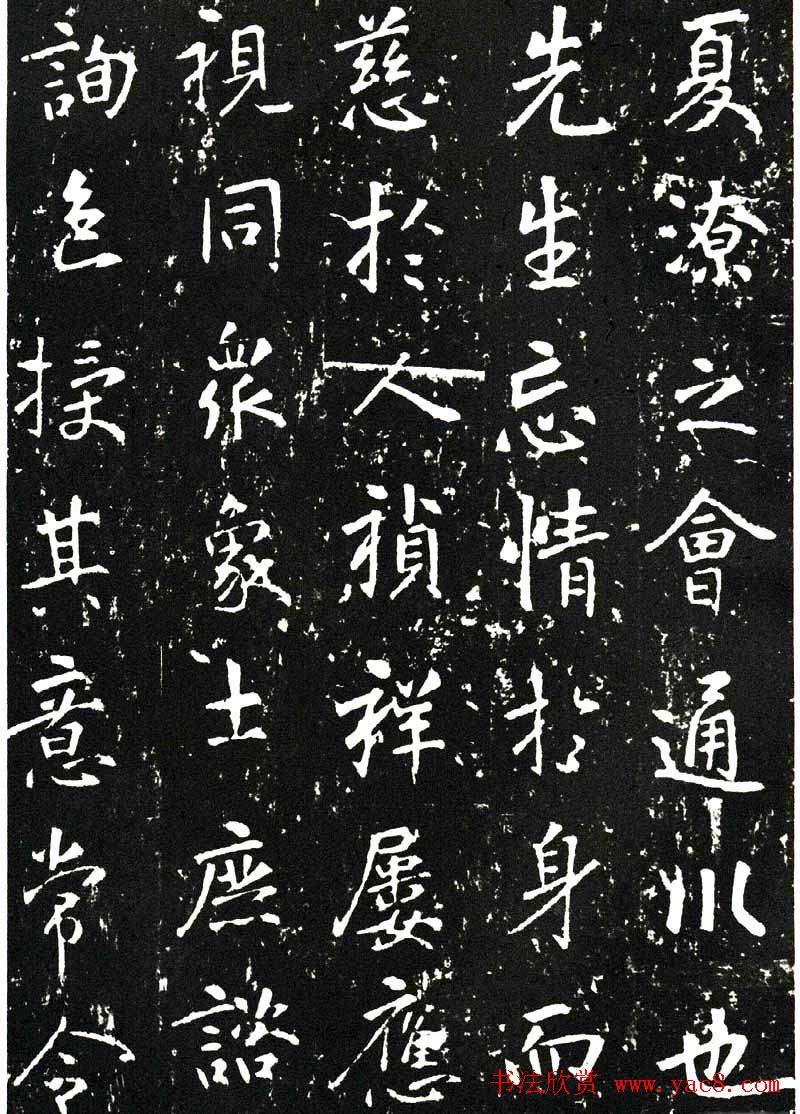 夏潦之會通川也
先生忘情於身而
慈於人禎祥屢應
視同衆象士庶談
詢色授其意常令
书法欣赏 www.yac8.com